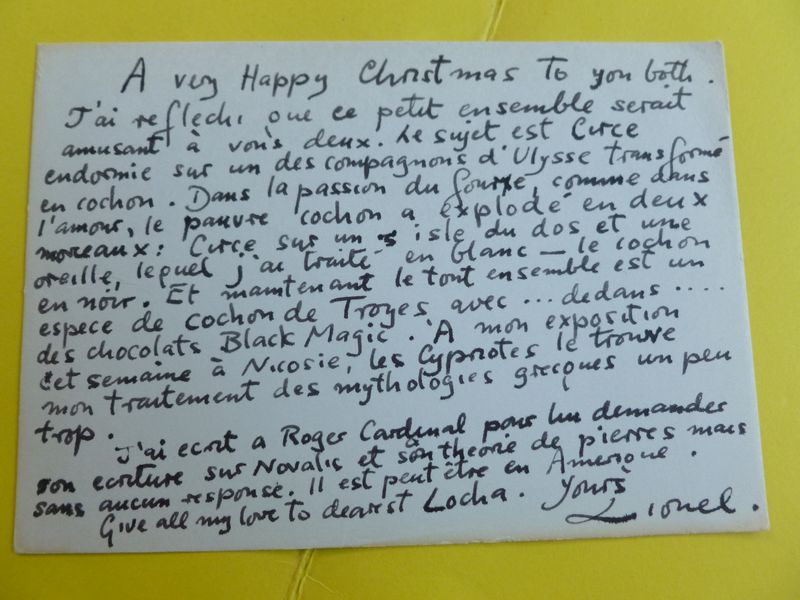 A very Happy Christmas To you both.
J'ai reflechi que ce petit ensemble serait
amusant à vous deux. Le sujet est Circe
endormie sur un des compagnons d'Ulysse transformé
en cochon. Dans la passion du fourxe, comme dans
l'amour, le pauvre cochon a explodé en deux
morceaux: Circe sur un isle du dos et une
oreille, lequel j'ai traité en blanc — le cochon
en noir. Et maintenant le tout ensemble est un
espece de cochon de Troyes avec ... dedans ....
des chocolats Black Magic. A mon exposition
cet semaine à Nicosie, les Cypriotes le trouve
mon traitement des mythologies grecques un peu
trop.
J'ai ecrit a Roger Cardinal pour lui demander
son ecriture sur Novalis et son theorie de pierres mais
sans aucun response. Il est peut être en Amerique.
Give all my love to dearest Locha. Yours
Lionel.